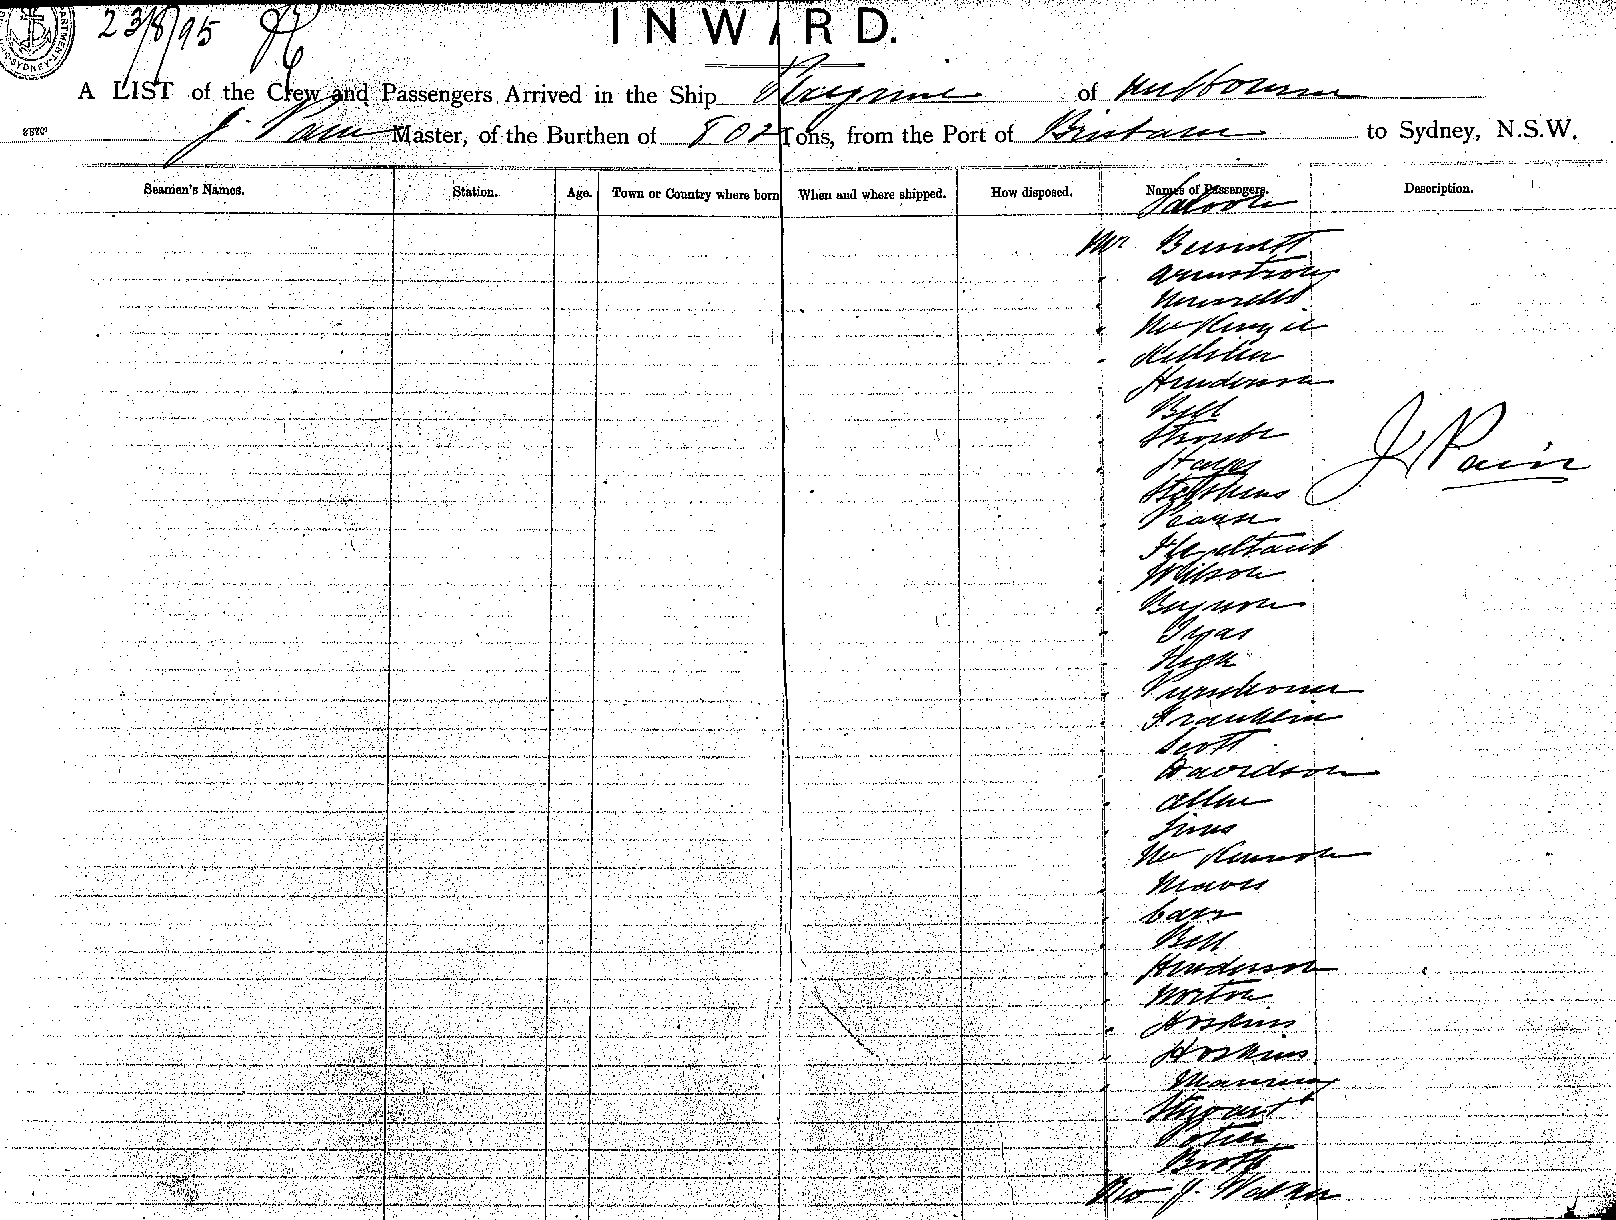 23/8/95
INWARD.
A LIST of the Crew and Passengers Arrived in the Ship Peregrine of Melbourne
J. Pain Master, of the Burthen of 802 Tons, from the Port of Brisbane to Sydney, N.S.W.
Seamen's Names. Station. Age. Town or Country where born When and where shipped. How disposed. Names of Passengers. Description.
Saloon
Mr Bennett
" Armstrong
"
" McKenzie
" Kelliher
" Henderson
" Bell
"
" Hayes
" Stephens
" Pearse
"
" Wilson
"
"
" High
"
" Franklin
" Scott
" Davidson
" Allen
" Sims
" McKinnon
"
" Carr
" Bell
" Henderson
" Norton
" Hoskins
" Hoskins
" Manning
" Stewart
" Potier
" Brott
Rev J. Walker
J Pain